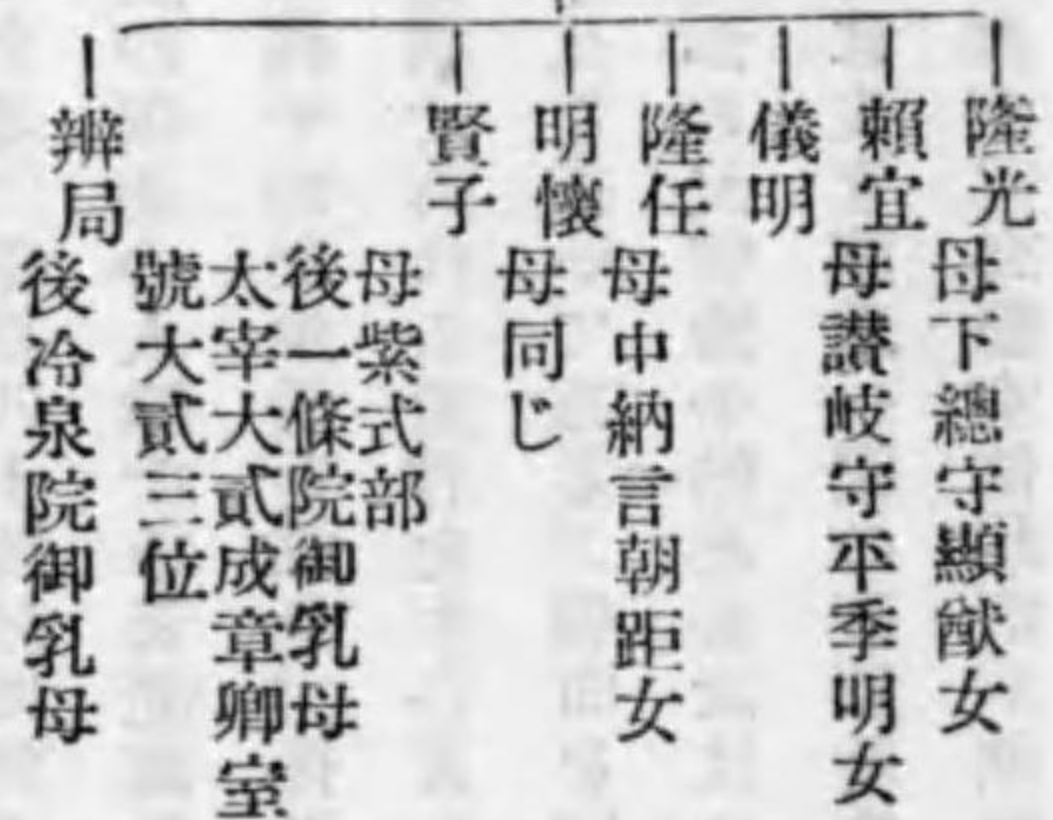 隆光
母下總守顯猷女
賴宜
母讃岐守平季明女
儀明
隆任
母中納言朝距女
明懷
母同じ
賢子
母紫式部
後一條院御乳母
太宰大貳成章卿室
號大貳三位
辨局
後冷泉院御乳母